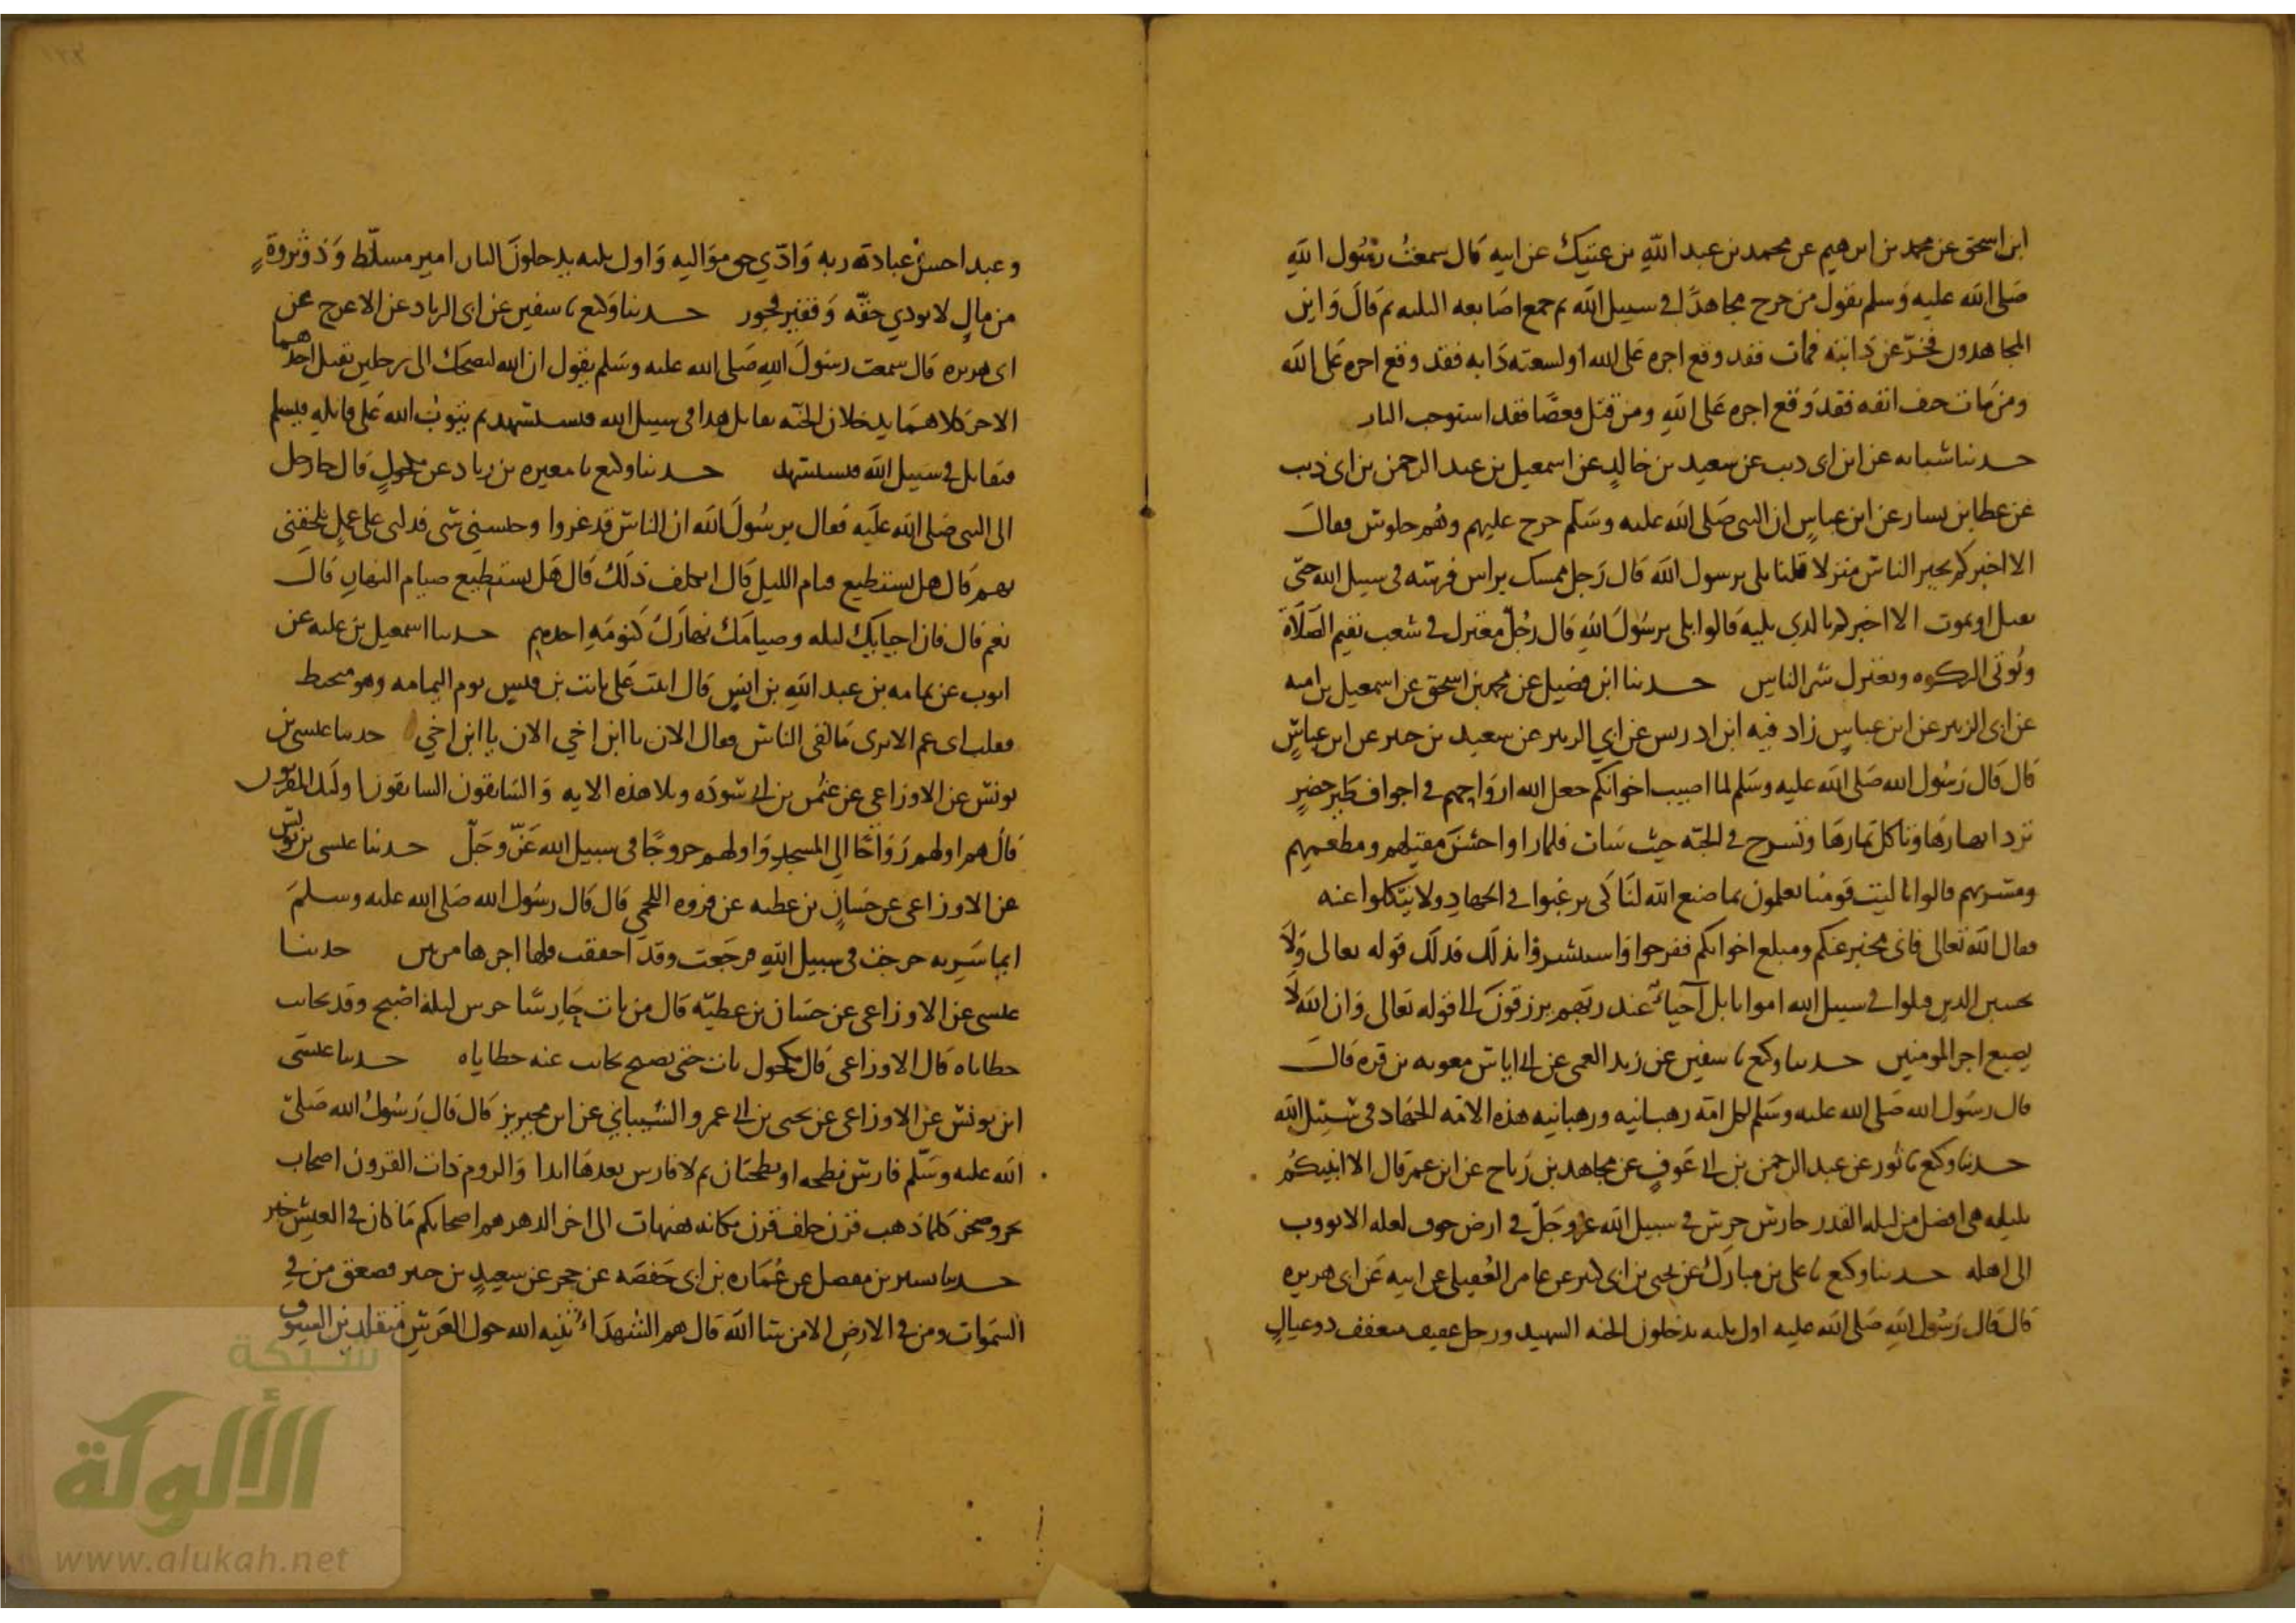 ابن اسحق عن محمد بن ابرهيم عن محمد بن عبد الله بن عتيك عن ابيه قال سمعت رسول الله
صلى الله عليه وسلم يقول من خرج مجاهدًا في سبيل الله ثم جمع اصابعه الثلثه ثم قال واين
المجاهدون فخرّ عن دابته فمات فقد وقع اجره على الله او لسعته دابه فقد وقع اجره على الله
ومن مات حتف انفه فقد وقع اجره على الله ومن قتل قعصًا فقد استوجب الماب
حدثنا شبابه عن ابن ابي ذيب عن سعيد بن خالد عن اسمعيل بن عبد الرحمن بن ابي ذيب
عن عطا بن يسار عن ابن عباس ان النبي صلى الله عليه وسلم خرج عليهم وهم جلوس فقال
الا اخبركم بخير الناس منزلا قلنا بلى يرسول الله قال رجل ممسك براس فرسه في سبيل الله حتى
يقتل او يموت الا اخبركم بالذي يليه قالوا بلى يرسول الله قال رجل معتزل في شعب يقيم الصلاة
ويؤتى الزكوه ويعتزل شر الناس حدثنا ابن فضيل عن محمد بن اسحق عن اسمعيل بن اميه
عن ابي الزبير عن ابن عباس زاد فيه ابن ادريس عن ابي الزبير عن سعيد بن جبير عن ابن عباس
قال قال رسول الله صلى الله عليه وسلم لما اصيب اخوانكم جعل الله ارواحهم في اجواف طير خضر
ترد انهارها وتاكل ثمارها وتسرح في الجنه حيث شات فلما راوا حسن مقيلهم ومطعمهم
ومشربهم قالوا يا ليت قومنا يعلمون بما صنع الله لنا كي يرغبوا في الجهاد ولا يتكلوا عنه
فقال الله تعالى فاني مخبر عنكم ومبلغ اخوانكم ففرحوا واستبشروا بذلك فذلك قوله تعالى ولا
تحسبن الذين قتلوا في سبيل الله امواتا بل احياء عند ربهم يرزقون الى قوله تعالى وان الله لا
يضيع اجر المومنين حدثنا وكيع نا سفين عن زيد العمي عن ابي اياس معويه بن قره قال
قال رسول الله صلى الله عليه وسلم لكل امة رهبانيه ورهبانيه هذه الامه الجهاد في سبيل الله
حدثنا وكيع نا ثور عن عبد الرحمن بن ابي عوف عن مجاهد بن رباح عن ابن عمر قال الا انبيكم
بليله هي افضل من ليله القدر حارس حرس في سبيل الله عز وجل في ارض خوف لعله الا يووب
الى اهله حدثنا وكيع نا علي بن مبارك عن يحيى بن ابي كثير عن عامر العقيلي عن ابيه عن ابي هريره
قال قال رسول الله صلى الله عليه اول ثلثه يدخلون الجنه الشهيد ورجل عفيف متعفف ذو عيال
وعبد احسن عبادة ربه وادى حق مواليه واول ثلثه يدخلون النار امير مسلّط وذو ثروة
من مال لا يودي حقّه وفقير فجور حدثنا وكيع نا سفين عن ابي الزناد عن الاعرج عن
ابي هريره قال سمعت رسول الله صلى الله عليه وسلم يقول ان الله ليضحك الى رجلين يقتل احدهما
الاخر كلاهما يدخلان الجنه يقاتل هذا في سبيل الله فيستشهد ثم يتوب الله على قاتله فيسلم
فيقاتل في سبيل الله فيستشهد حدثنا وكيع نا مغيره بن زياد عن مكحول قال جا رجل
الى النبي صلى الله عليه فقال يرسول الله ان الناس قد غزوا وحبسني شي فدلني على عمل يلحقني
بهم قال هل تستطيع قيام الليل قال اتكلف ذلك قال هل تستطيع صيام النهار قال
نعم قال فان احيايك ليله وصيامك نهارك كنومه احدهم حدثنا اسمعيل بن عليه عن
ايوب عن ثمامه بن عبد الله بن انس قال اتيت على ثابت بن قيس يوم اليمامه وهو متحنط
فقلت اي عم الا ترى ما لقي الناس فقال الان يا ابن اخي الان يا ابن اخي حدثنا عيسى بن
يونس عن الاوزاعي عن عثمن بن ابي سوده وتلا هذه الايه والسابقون السابقون اوليك المقربون
قال هم اولهم رواحًا الى المسجد واولهم خروجًا في سبيل الله عز وجل حدثنا عيسى بن يونس
عن الاوزاعي عن حسان بن عطيه عن فروه اللخمي قال قال رسول الله صلى الله عليه وسلم
ايما سريه خرجت في سبيل الله فرجعت وقد اخفقت فلها اجرها مرتين حدثنا
عيسى عن الاوزاعي عن حسان بن عطيّه قال من بات حارسًا حرس ليلة اصبح وقد تحاتت
خطاياه قال الاوزاعي قال مكحول بات حتى يصبح تحاتت عنه خطاياه حدثنا عيسى
ابن يونس عن الاوزاعي عن يحيى بن ابي عمرو الشيباني عن ابن محيريز قال قال رسول الله صلى
الله عليه وسلم فارس نطحه او نطحتان ثم لا فارس بعدها ابدا والروم ذات القرون اصحاب
بحر وصخر كلما ذهب قرن خلف قرن مكانه هيهات الى اخر الدهر هم اصحابكم ما كان في العيش خير
حدثنا بن مفضل عن عماره بن ابي حفصه عن حجر عن سعيد بن جبير فصعق من في
السموات ومن في الارض الا من شا الله قال هم الشهداء ثنيه الله حول العرش متقلدين السيوف
شبكة
الألوكة
www.alukah.net